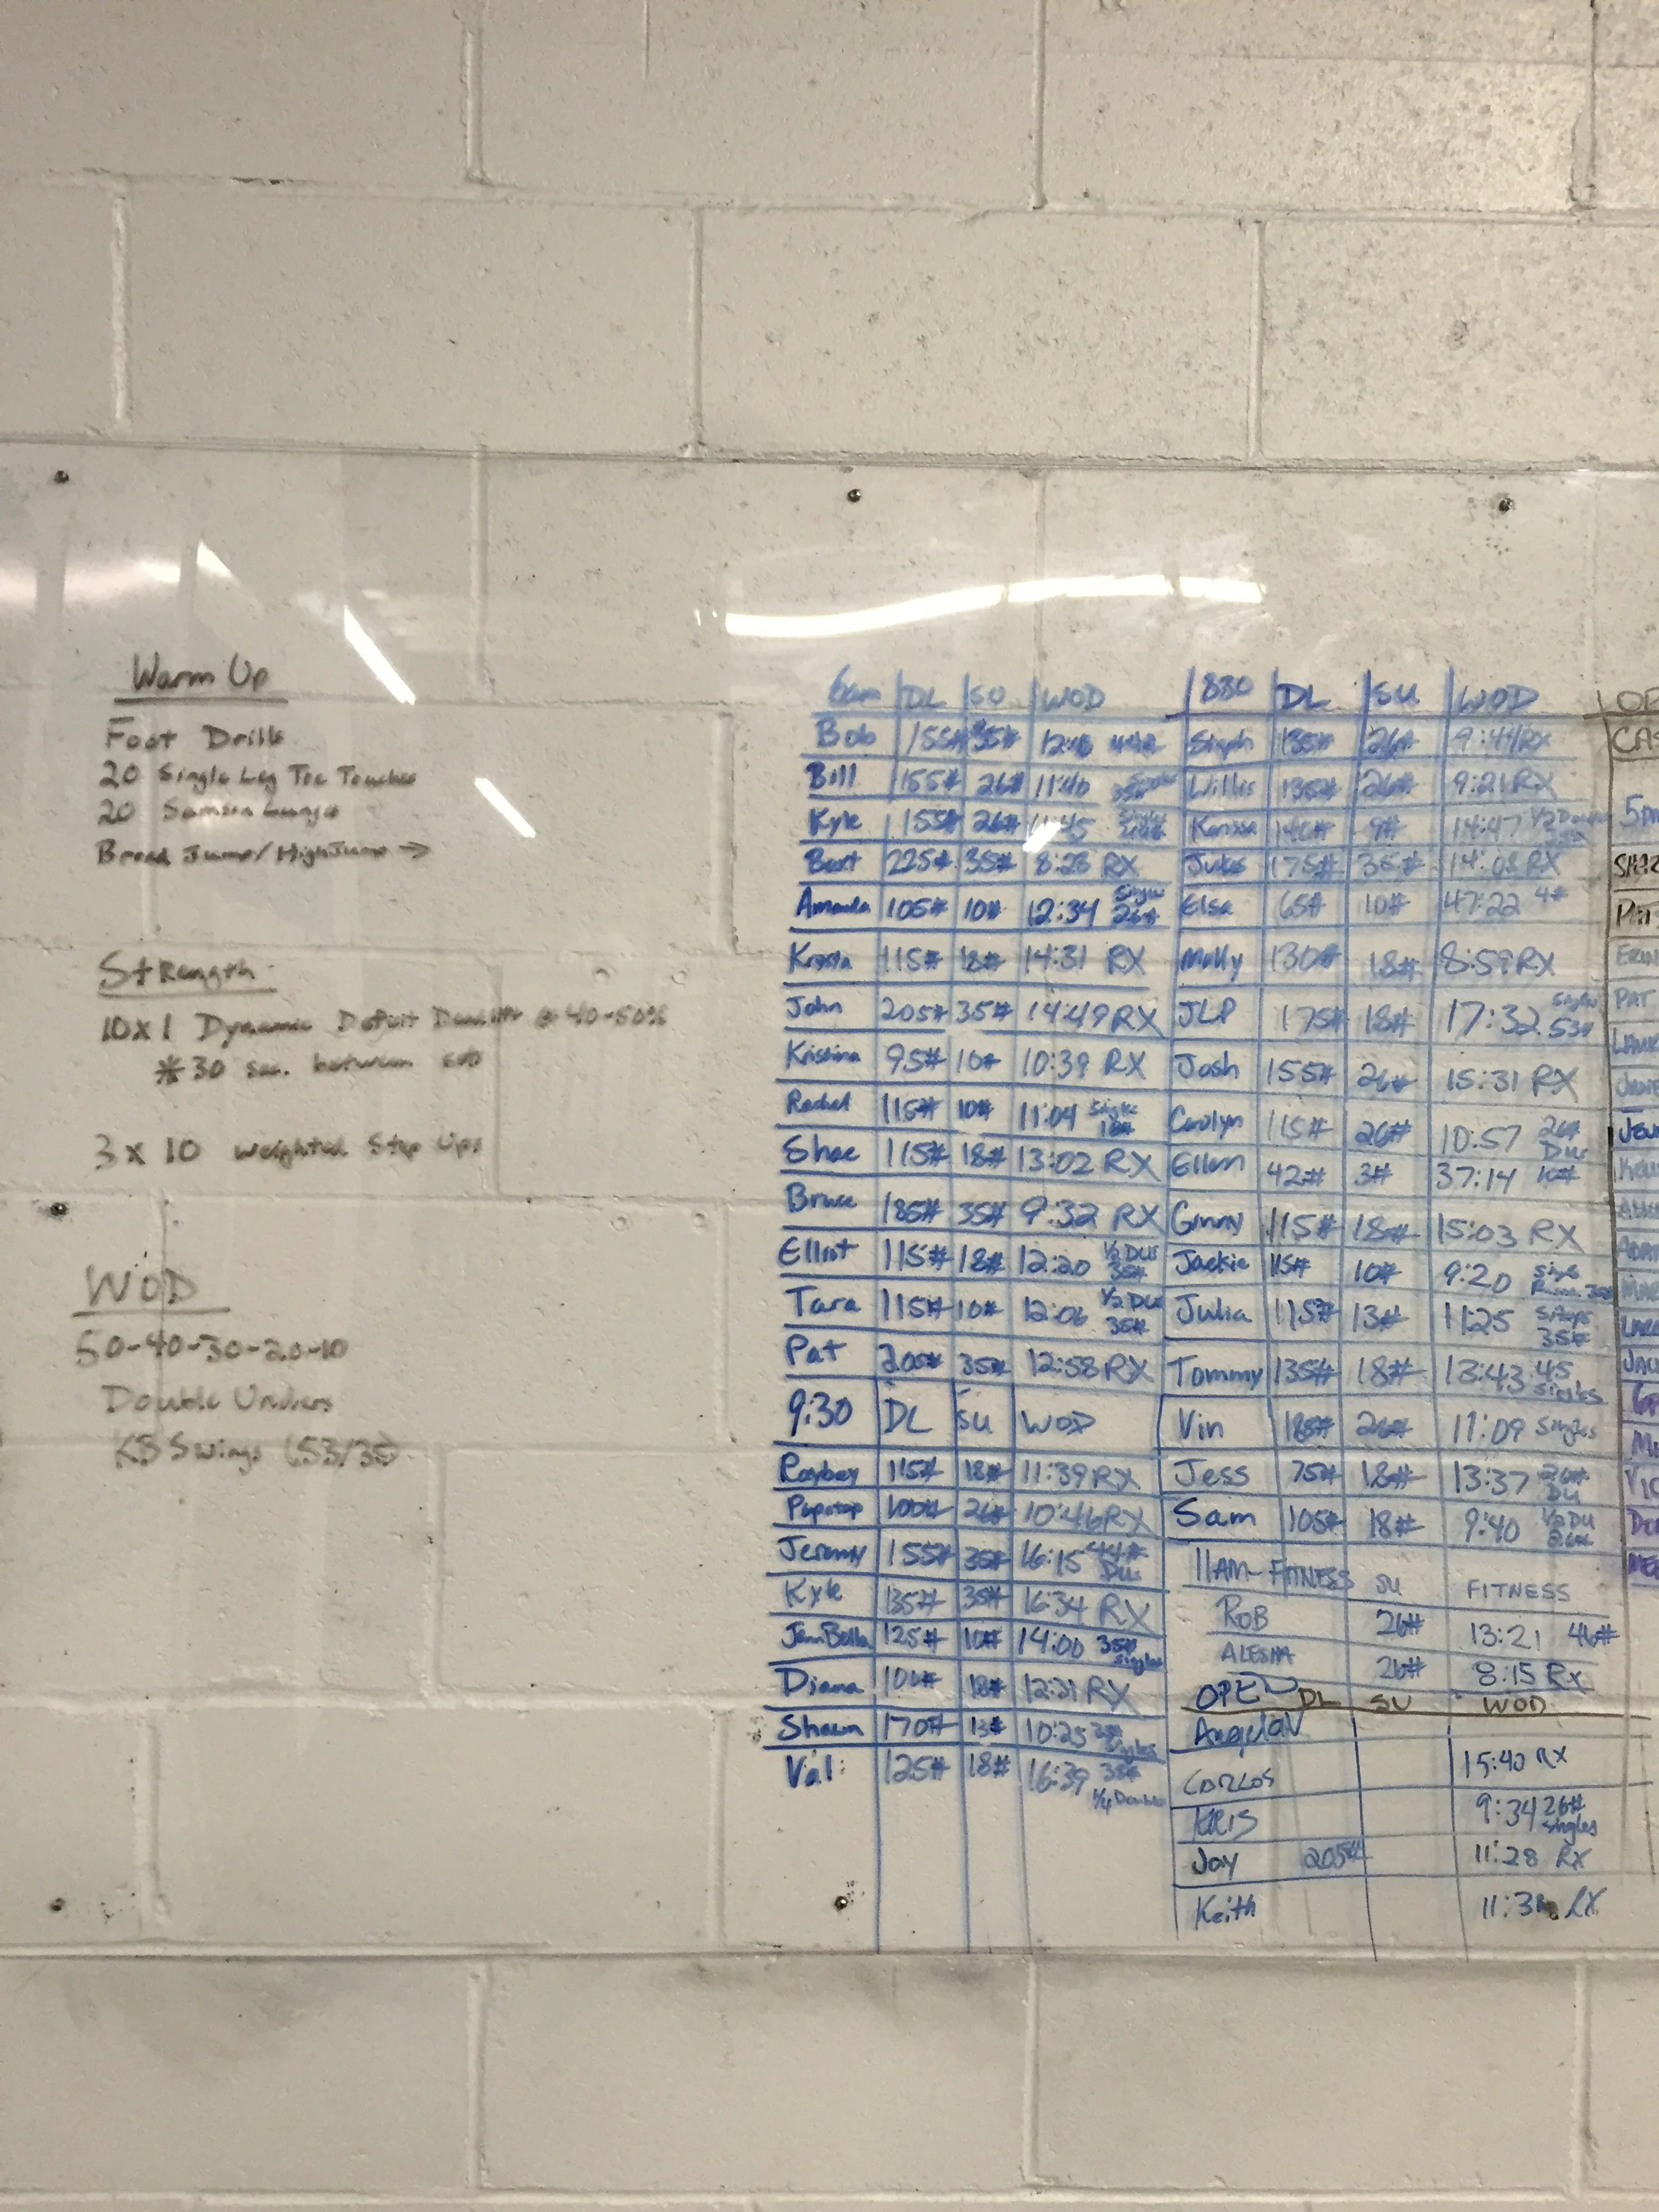 Warm Up
Foot Drills
20 Single Leg Toe Touches
20 Samson Lunges
Broad Jump/High Jump →
Strength
10x1 Dynamic Deficit Deadlifts @ 40-50%
*30 sec. between sets
3 x 10 Weighted Step Ups
WOD
50-40-30-20-10
Double Unders
KB Swings (53/35)
6am DL SU WOD
Bob 155# 35#
Bill 155# 26# 11:40
Kyle 155# 26# 11:45
Bert 225# 35# 8:28 RX
Amanda 105# 10# 12:34 Singles 26#
Krista 115# 18# 14:31 RX
John 205# 35# 14:49 RX
Kristina 95# 10# 10:39 RX
Rachel 115# 10# 11:04 Single 18#
Shae 115# 18# 13:02 RX
Bruce 185# 35# 9:32 RX
Elliot 115# 18# 12:20 1/2 DUs 35#
Tara 115# 10# 12:06 1/2 DUs 35#
Pat 205# 35# 12:58 RX
9:30 DL SU WOD
115# 18# 11:39 RX
Popstop 100# 26# 10:46 RX
Jeremy 155# 35# 16:15 44# DU
Kyle 135# 35# 16:34 RX
JennBella 125# 10# 14:00 35# Singles
Diana 18# 12:21 RX
Shawn 170# 13# 10:25 Singles
Val 125# 18# 16:39 35# 1/4 Doubles
830 DL SU WOD
Steph 135# 26# 9:44 RX
Willis 135# 26# 9:21 RX
Karissa 140# 9# 14:47
Jukes 175# 35# 14:08 RX
Elsa 65# 10# 47:22 4#
Molly 130# 18# 8:59 RX
JLP 175# 18# 17:32 Singles 53#
Josh 155# 26# 15:31 RX
Carolyn 115# 26# 10:57 26# DUs
Ellen 42# 3# 37:14 10#
Ginny 115# 18# 15:03 RX
Jackie 115# 10# 9:20
Julia 115# 13# 1125 Singles 35#
Tommy 135# 18# 13:43 45 Singles
Vin 185# 26# 11:09 Singles
Jess 75# 18# 13:37 26# DU
Sam 105# 18# 9:40 1/2 DU 26#
11AM-FITNESS SU FITNESS
ROB 26# 13:21 46#
ALESHA 26# 8:15 Rx
OPEN DL SU WOD
AngelaV
CARLOS 15:40 RX
KRIS 9:34 26# Singles
Jay 205# 11:28 RX
Keith